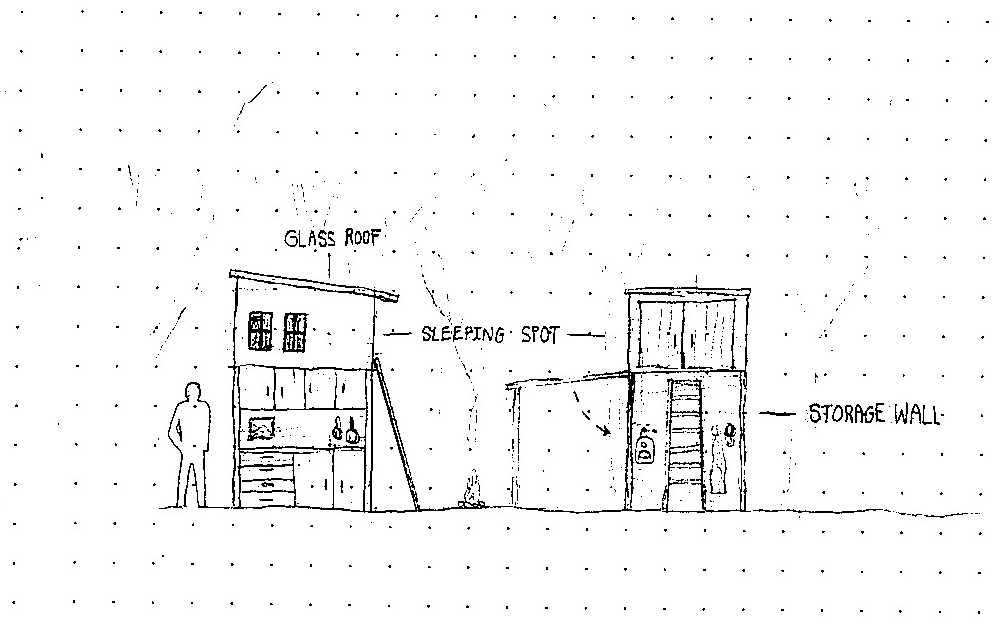 GLASS ROOF
SLEEPING SPOT
STORAGE WALL